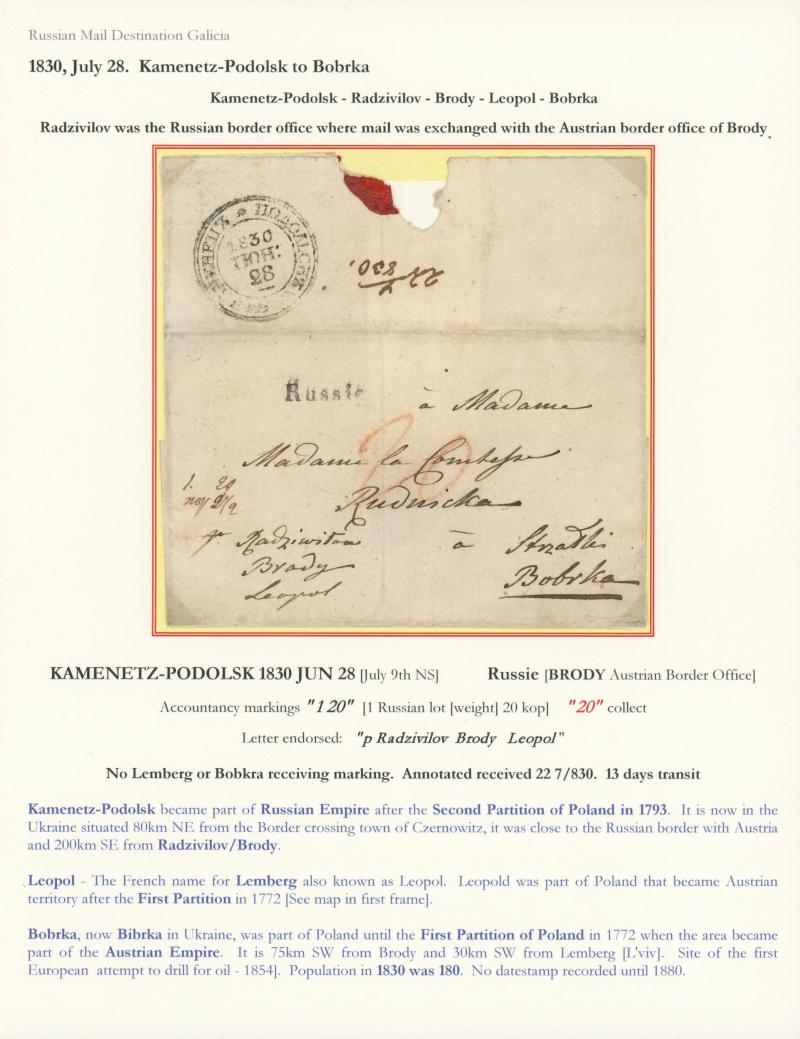 Russian Mail Destination Galicia
1830, July 28.  Kamenetz-Podolsk to Bobrka
Kamenetz-Podolsk - Radzivilov - Brody - Leopol - Bobrka
Radzivilov was the Russian border office where mail was exchanged with the Austrian border office of Brody.
ПОДОЛЬСКЪ
1830
ІЮН:
28
22/7 830.
Russie
à Madame
Madame la Comtesse
Rudnicka
1. 20
p Radziwiłłow à Strzałki
Brody Bobrka
Leopol
20
KAMENETZ-PODOLSK 1830 JUN 28 [July 9th NS] Russie [BRODY Austrian Border Office]
Accountancy markings "1 20" [1 Russian lot [weight] 20 kop] "20" collect
Letter endorsed: "p Radzivilov Brody Leopol"
No Lemberg or Bobkra receiving marking.  Annotated received 22 7/830.  13 days transit
Kamenetz-Podolsk became part of Russian Empire after the Second Partition of Poland in 1793.  It is now in the
Ukraine situated 80km NE from the Border crossing town of Czernowitz, it was close to the Russian border with Austria
and 200km SE from Radzivilov/Brody.
Leopol - The French name for Lemberg also known as Leopol.  Leopold was part of Poland that became Austrian
territory after the First Partition in 1772 [See map in first frame].
Bobrka, now Bibrka in Ukraine, was part of Poland until the First Partition of Poland in 1772 when the area became
part of the Austrian Empire.  It is 75km SW from Brody and 30km SW from Lemberg [L'viv].  Site of the first
European attempt to drill for oil - 1854].  Population in 1830 was 180.  No datestamp recorded until 1880.